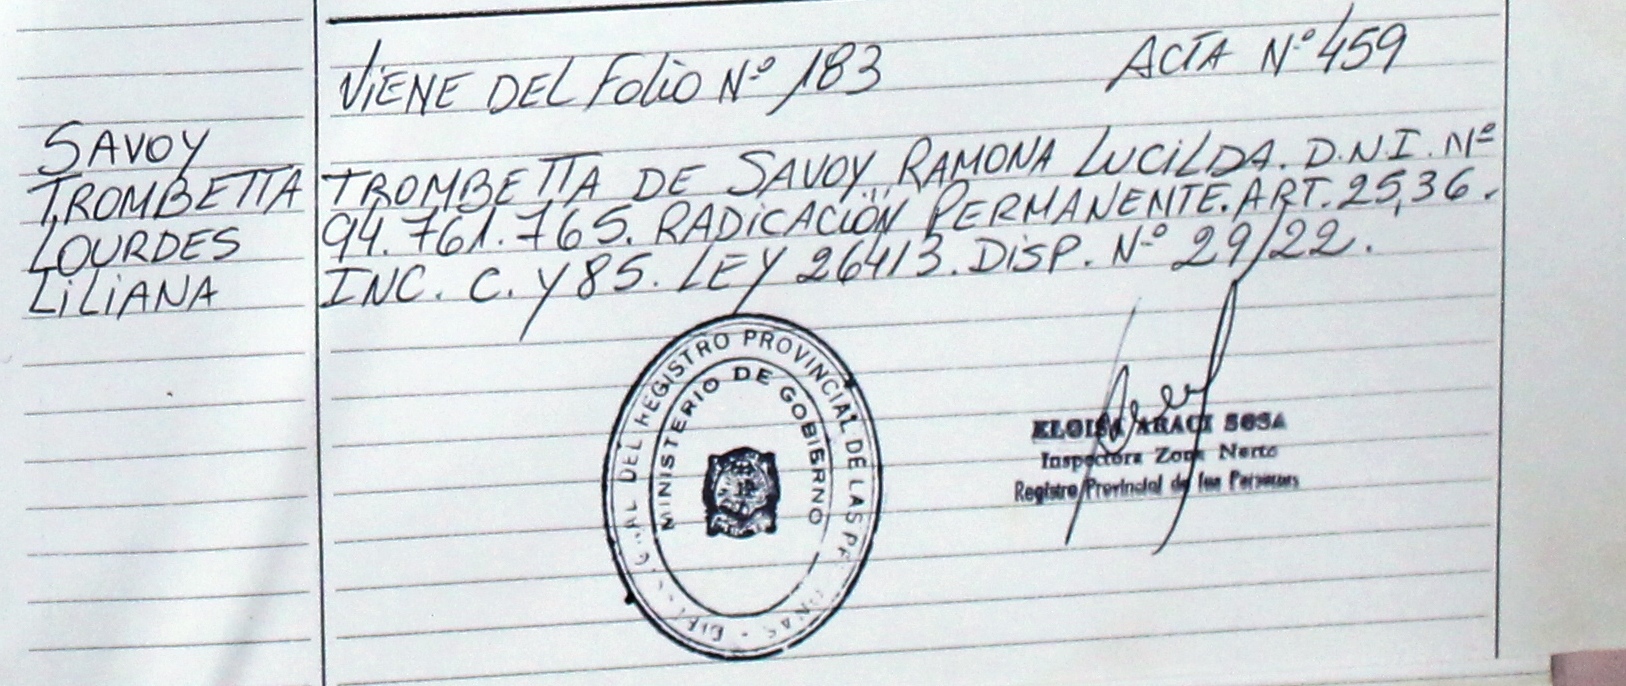 VIENE DEL FOLIO Nº 183 ACTA Nº 459
SAVOY
TROMBETTA
LOURDES
LILIANA
TROMBETTA DE SAVOY RAMONA LUCILDA. D.N.I. Nº
94.761.765. RADICACIÓN PERMANENTE. ART. 25,36.
INC. C. Y 85. LEY 26413. DISP. Nº 29/22.
DEL REGISTRO PROVINCIAL DE LAS
MINISTERIO DE GOBIERNO
ELOISA ARACI SOSA
Inspectora Zona Norte
Registro Provincial de las Personas